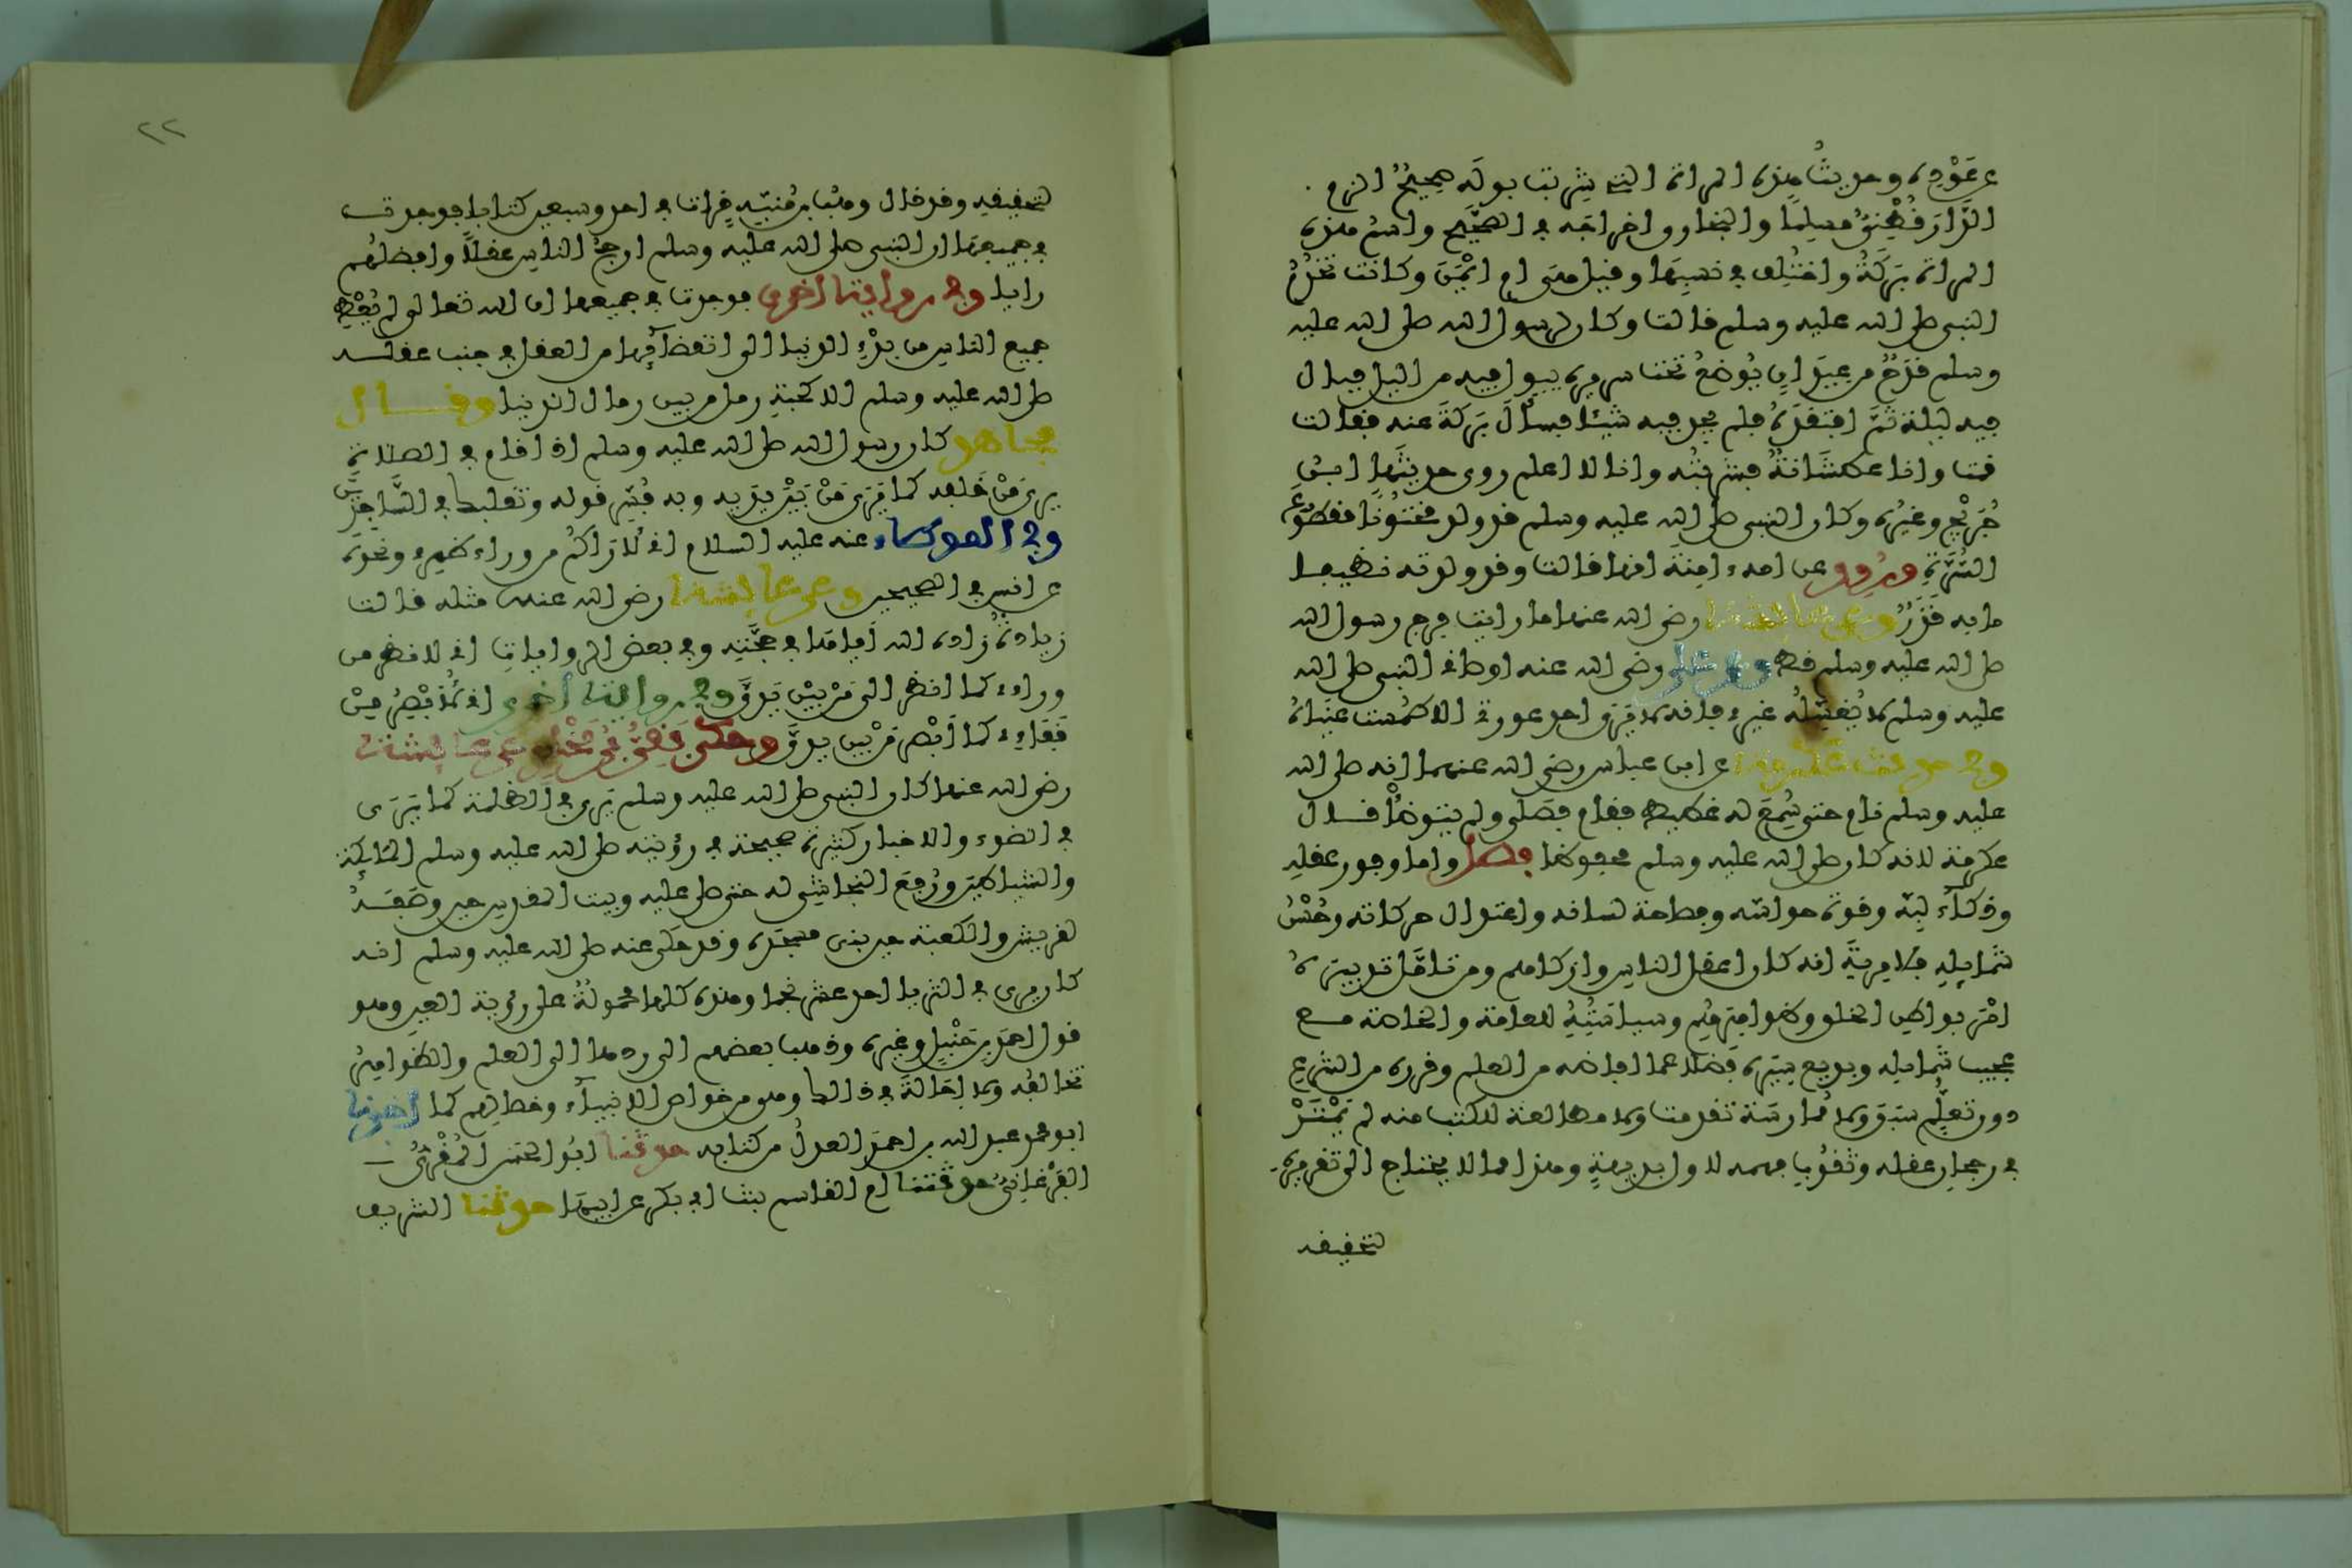 عن عَوْدِه وحديثُ هذه المراة التي شربت بوله صحيحٌ الزم
الدَّارَقُطْنيُّ مسلمًا والبخاري اخراجَه في الصَّحيح واسمُ هذه
المراة بَرَكَةُ واختُلِف في نسبِها وقيل هي ام ايْمَنَ وكانت تخدُمُ
النبي صلى الله عليه وسلم قالت وكان لرسول الله صلى الله عليه
وسلم قَدَحٌ من عيدانٍ يُوضعُ تحت سريره يبول فيه من اليل فبال
فيه ليلة ثمَّ افتقدَه فلم يجد فيه شيئا فسألَ بَرَكَةَ عنه فقالت
قمت وانا عطشَانةٌ فشربتُه وانا لا اعلم روى حديثَها ابن
جُرَيْج وغيره وكان النبي صلى الله عليه وسلم قد ولد مختونًا مقطوعَ
السُّرَّةِ وروي عن امه ءامِنةَ انها قالت قد ولدته نظيفا
ما به قَذَرٌ وعن عايشة رضي الله عنها ما رايت فرج رسول الله
صلى الله عليه وسلم قط وعن علي رضي الله عنه اوصاني النبي صلى الله
عليه وسلم لا يُغسّلُه غيري فانه لا يَرَى احد عورتي الا طُمِست عَيناهُ
وفي حديث عكرمة عن ابن عباس رضي الله عنهما انه صلى الله
عليه وسلم نام حتى سُمِعَ له غطيط فقام فصَلى ولم يتوضأْ قال
عكرمة لانه كان صلى الله عليه وسلم محفوظا فصل واما وفور عقلِه
وذكآءُ لبِّه وقوة حواسِّه وفصاحة لسانه واعتدال حركاته وحُسْنُ
شمايلِه فلا مِريةَ انه كان اعقل الناس واذكاهم ومن تامَّل تدبيرَهُ
امْرَ بواطِن الخلق وظواهِرِهُم وسياستِهِ للعامة والخاصة مع
عجيب شَمايله وبديع سِيَرِه فَضلا عما افاضه من العلم وقرره من الشرع
دون تعلُّم سَبَق ولا مُمارسَة تقدمت ولا مطالعة للكتب منه لم يَمْتَرْ
في رجحانِ عقله وثقُوبِ فهمه لاول بديهةٍ وهذا مما لا يحتاج الى تقريره
لتحقيقه
٢٢
لتحقيقه وقد قال وهْب بن مُنَبّه قرات في احد وسبعين كتابا فوجدت
في جميعها ان النبي صلى الله عليه وسلم ارجحُ الناس عقلاً وافضلُهم
رايا وفي رواية اخرى فوجدت في جميعها ان الله تعالى لم يُعْطِ
جميع الناس من بدْءِ الدنيا الى انقضآئِها من العقل في جنب عقله
صلى الله عليه وسلم الا كحبة رمل من بين رمال الدنيا وقال
مجاهد كان رسول الله صلى الله عليه وسلم اذا قام في الصلاة
يرى مَنْ خَلفه كما يَرَى مَنْ بَيْنَ يديه وبه فُسّر قوله وتقلبك في السَّاجدين
وفي الموطاء عنه عليه السلام اني لاَراكُم من وراء ظهري ونحوَه
عن انس في الصحيحين وعن عايشة رضي الله عنها مثله قالت
زيادةٌ زاده الله اياها في حجَّتِه وفي بعض الروايات اني لانظر من
وراءي كما انظر الى مَنْ بيْن يَدَيَّ وفي رواية اخرى اني لاُبْصِرُ مِنْ
قَفَاءِي كما اَبْصِر مَنْ بين يديَّ وحكى بَقِيُّ بنُ مَخْلَدٍ عن عايشة
رضي الله عنها كان النبي صلى الله عليه وسلم يَرى في الظلمة كما يَرَى
في الضوء والاخبار كثيرة صحيحة في رؤيته صلى الله عليه وسلم الملائكة
والشياطينَ ورُفِعَ النجاشِي له حتى صلى عليه وبيت المقدس حين وصَفَهُ
لقريش والكعبة حين بنى مسجدَه وقد حُكي عنه صلى الله عليه وسلم انه
كان يرى في الثريا احد عشر نجما وهذه كلها محمولةٌ على رؤية العين وهو
قول احمد بن حَنْبَلٍ وغيره وذهب بعضهم الى ردها الى العلم والظواهرُ
تخالفُه ولا اِحَالةَ في ذالك وهو من خواص الانبيآء وخصالِهم كما اخبرنا
ابو محمد عبد الله بن احمدَ العدلُ من كتابه حدثنا ابُو الحَسَن المُقْرِئُ
الفَرْغانيُّ حدثتنا ام القاسم بنت ابي بكر عن ابيها حدثنا الشريف